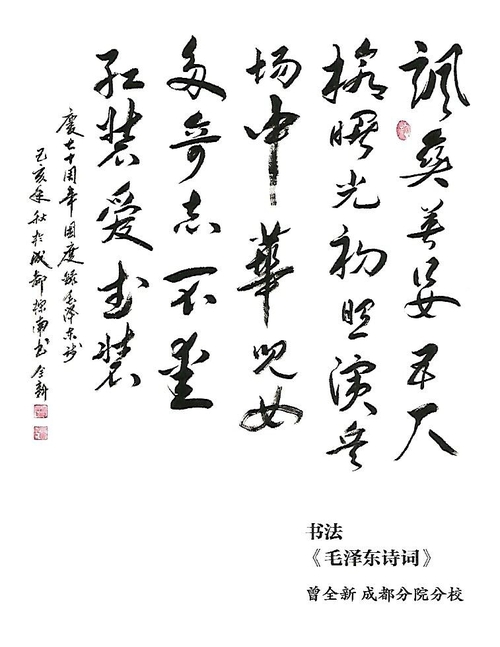 颯爽英姿五尺
槍曙光初照演兵
场中華児女
多奇志不爱
红装爱武装
慶七十周年国慶録毛泽东诗
己亥年秋於成都南书全新
书法
《毛泽东诗词》
曾全新 成都分院分校